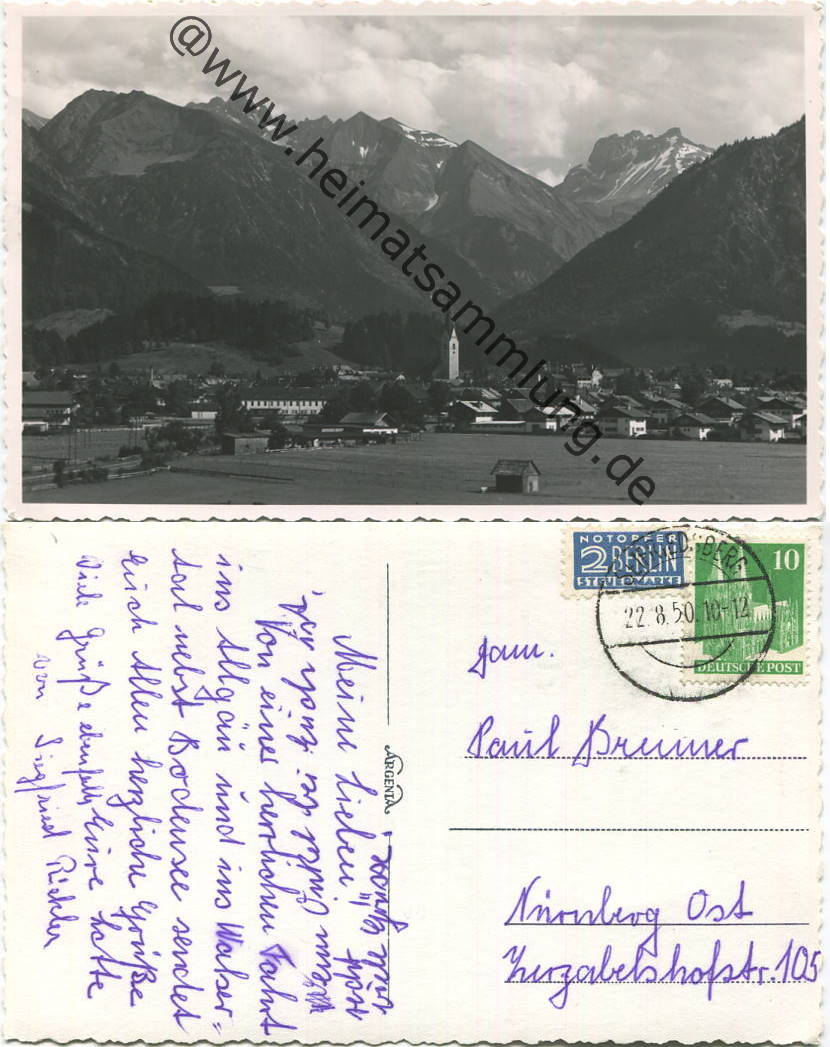 @www.heimatsammlung.de
NOTOPFER
2 BERLIN
STEUERMARKE
22.8.50.10-12
10
DEUTSCHE POST
ARGENTA
Fam.
Paul Brunner
Nürnberg Ost
Zerzabelshofstr. 105
Meine Lieben!
Von einer herrlichen Fahrt
ins Allgäu und ins Walser-
tal nebst Bodensee sendet
Euch Allen herzliche Grüße
Eure Lotte
Viele Grüße ebenfalls
von Siegfried Büchler